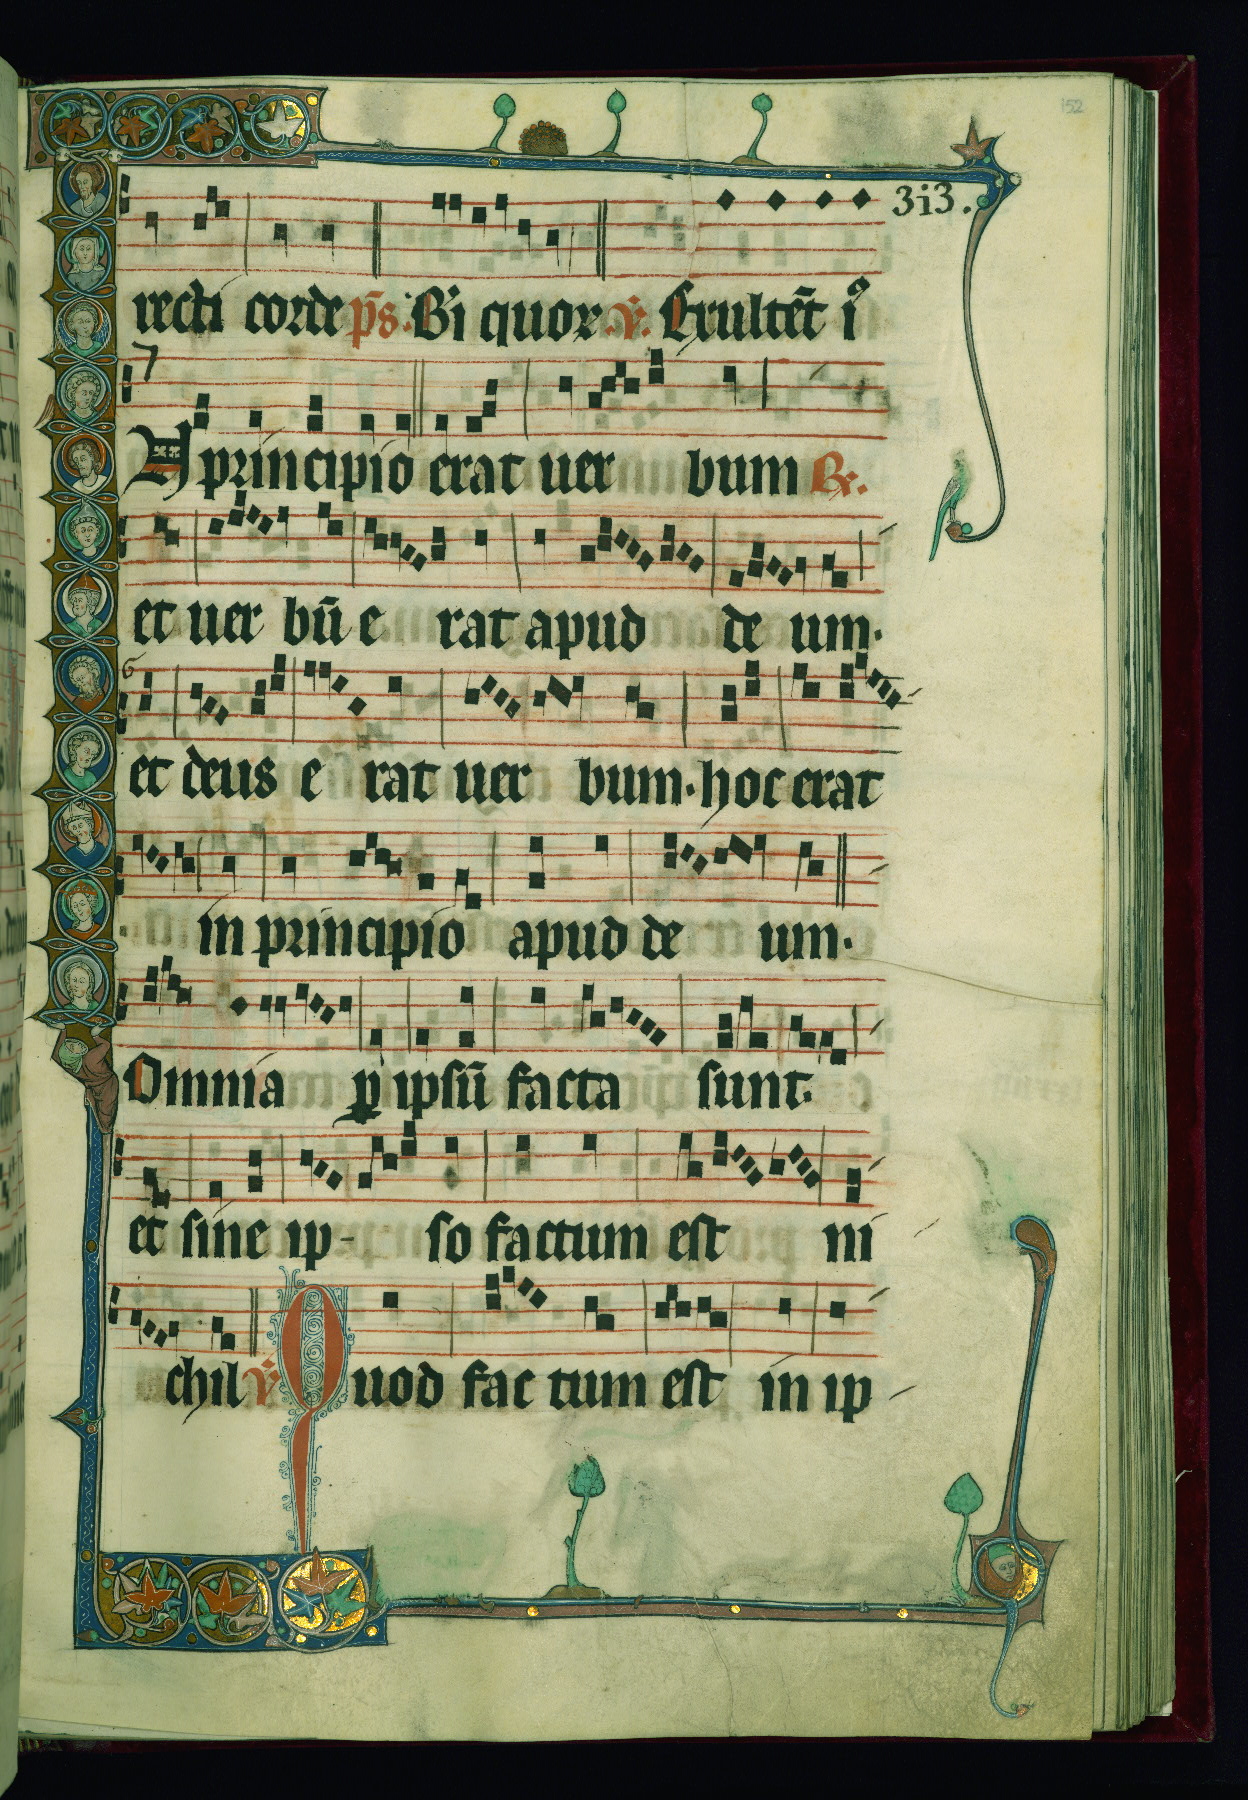 152
3i3.
recti corde p̄s. Bi quor ℣. Exultēt iꝰ
7
In principio erat uer bum ℞.
et uer bū e rat apud de um.
6
et deus e rat uer bum. hoc erat
in principio apud de um.
Omnia ꝑ ipsū facta sunt.
et sine ip- so factum est ni
chil ℣ Quod fac tum est in ip